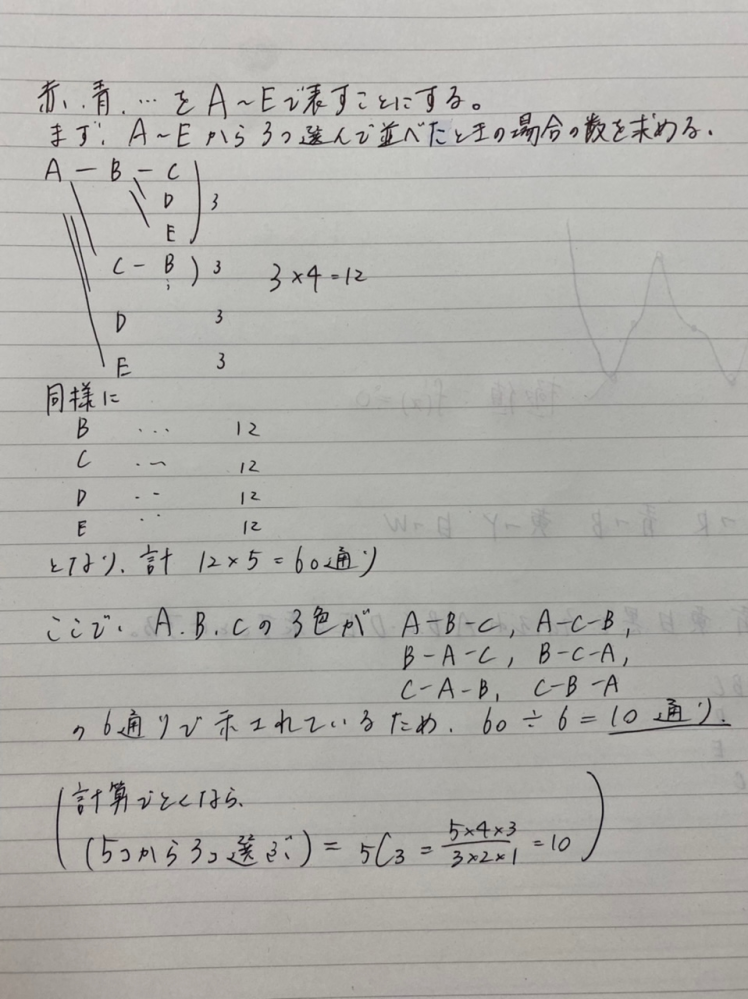 赤、青、… を A～E で表すことにする。
まず、A～E から 3つ選んで並べたときの場合の数を求める。
A － B － C
D
E
3
C － B
⋮
3
3×4=12
D 3
E 3
同様に
B … 12
C … 12
D … 12
E … 12
となり、計 12×5=60通り
ここで、A.B.Cの3色が A-B-C, A-C-B,
B-A-C, B-C-A,
C-A-B, C-B-A
の6通りで示されているため、60÷6=10通り.
計算でとくなら、
(5つから3つ選ぶ) = 5C3 = 5×4×3/3×2×1 = 10